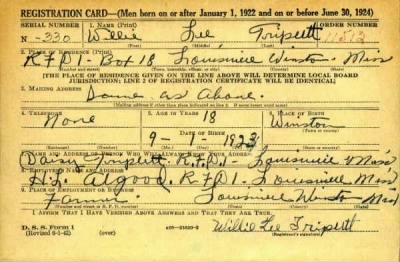 REGISTRATION CARD—(Men born on or after January 1, 1922 and on or before June 30, 1924)
SERIAL NUMBER 1. NAME (Print) ORDER NUMBER
N -330 Willie Lee Triplett 11513
(First) (Middle) (Last)
2. PLACE OF RESIDENCE (Print)
R F D 1 - Box 18 Louisville Winston Miss
[THE PLACE OF RESIDENCE GIVEN ON THE LINE ABOVE WILL DETERMINE LOCAL BOARD
JURISDICTION; LINE 2 OF REGISTRATION CERTIFICATE WILL BE IDENTICAL]
3. MAILING ADDRESS
Same as Above.
4. TELEPHONE 5. AGE IN YEARS 6. PLACE OF BIRTH
None 18 Winston
DATE OF BIRTH
9 - 1 - 1923
7. NAME AND ADDRESS OF PERSON WHO WILL ALWAYS KNOW YOUR ADDRESS
Daisy Triplett, Louisville Miss
8. EMPLOYER'S NAME AND ADDRESS
Algood, R F D 1, Louisville Miss
9. PLACE OF EMPLOYMENT OR BUSINESS
Farmer Louisville Winston Miss
I AFFIRM THAT I HAVE VERIFIED ABOVE ANSWERS AND THAT THEY ARE TRUE.
D. S. S. Form 1
(Revised 6-1-42) Willie Lee Triplett
(Registrant's signature)